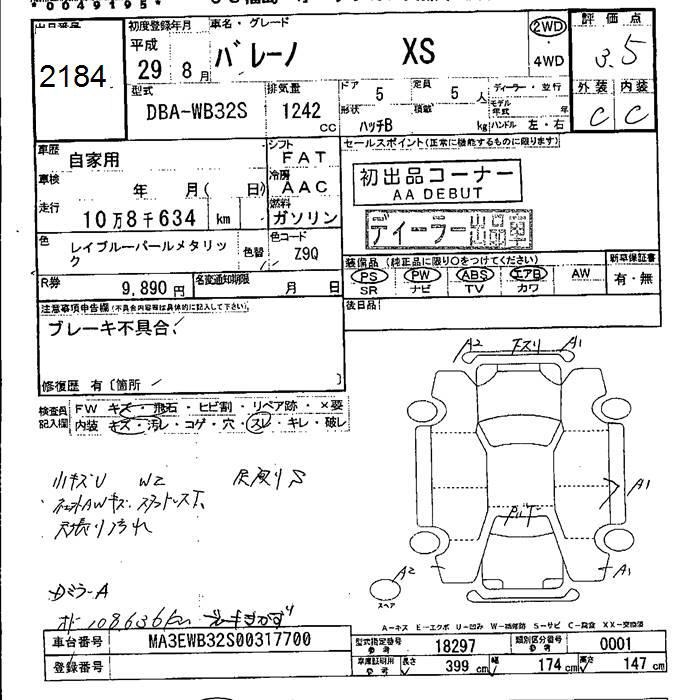 初度登録年月 車名・グレード
平成 29年 8月 バレーノ XS
2WD ・ 4WD
評価点 3.5
2184
型式 DBA-WB32S 排気量 1242 cc
ドア 5 定員 5人
ディーラー・並行
形状 ハッチB 積載 kg
モデル年式 年
ハンドル 左・右
外装 内装
C C
車歴 自家用
シフト FAT
セールスポイント(正常に機能するものに限ります)
車検 年 月( 日)
冷房 AAC
初出品コーナー
AA DEBUT
走行 10万8千634 km
燃料 ガソリン
ディーラー出品車
色 レイブルーパールメタリック
色替
色コード Z9Q
装備品(純正品に限り○をつけてください)
新車保証書
PS PW ABS エアB AW
有・無
SR ナビ TV カワ
R券 9,890円 名変通知期限 月 日
後日品
注意事項申告欄(不具合内容等は具体的に記入して下さい)
ブレーキ不具合、
修復歴 有〔箇所 〕
検査員記入欄
FW キズ・飛石・ヒビ割・リペア跡・×要
内装 キズ・汚レ・コゲ・穴・スレ・キレ・破レ
A2 下スリ A1
小キズU W2
天張り汚れ
A1
A2
A1
スペア
Dミラ-A
108636km
A-キズ E-エクボ U-凹み W-補修跡 S-サビ C-腐食 XX-交換済
車台番号 MA3EWB32S00317700
型式指定番号 参考 18297 類別区分番号 参考 0001
登録番号
車庫証明用 参考 長さ 399cm 幅 174cm 高さ 147cm